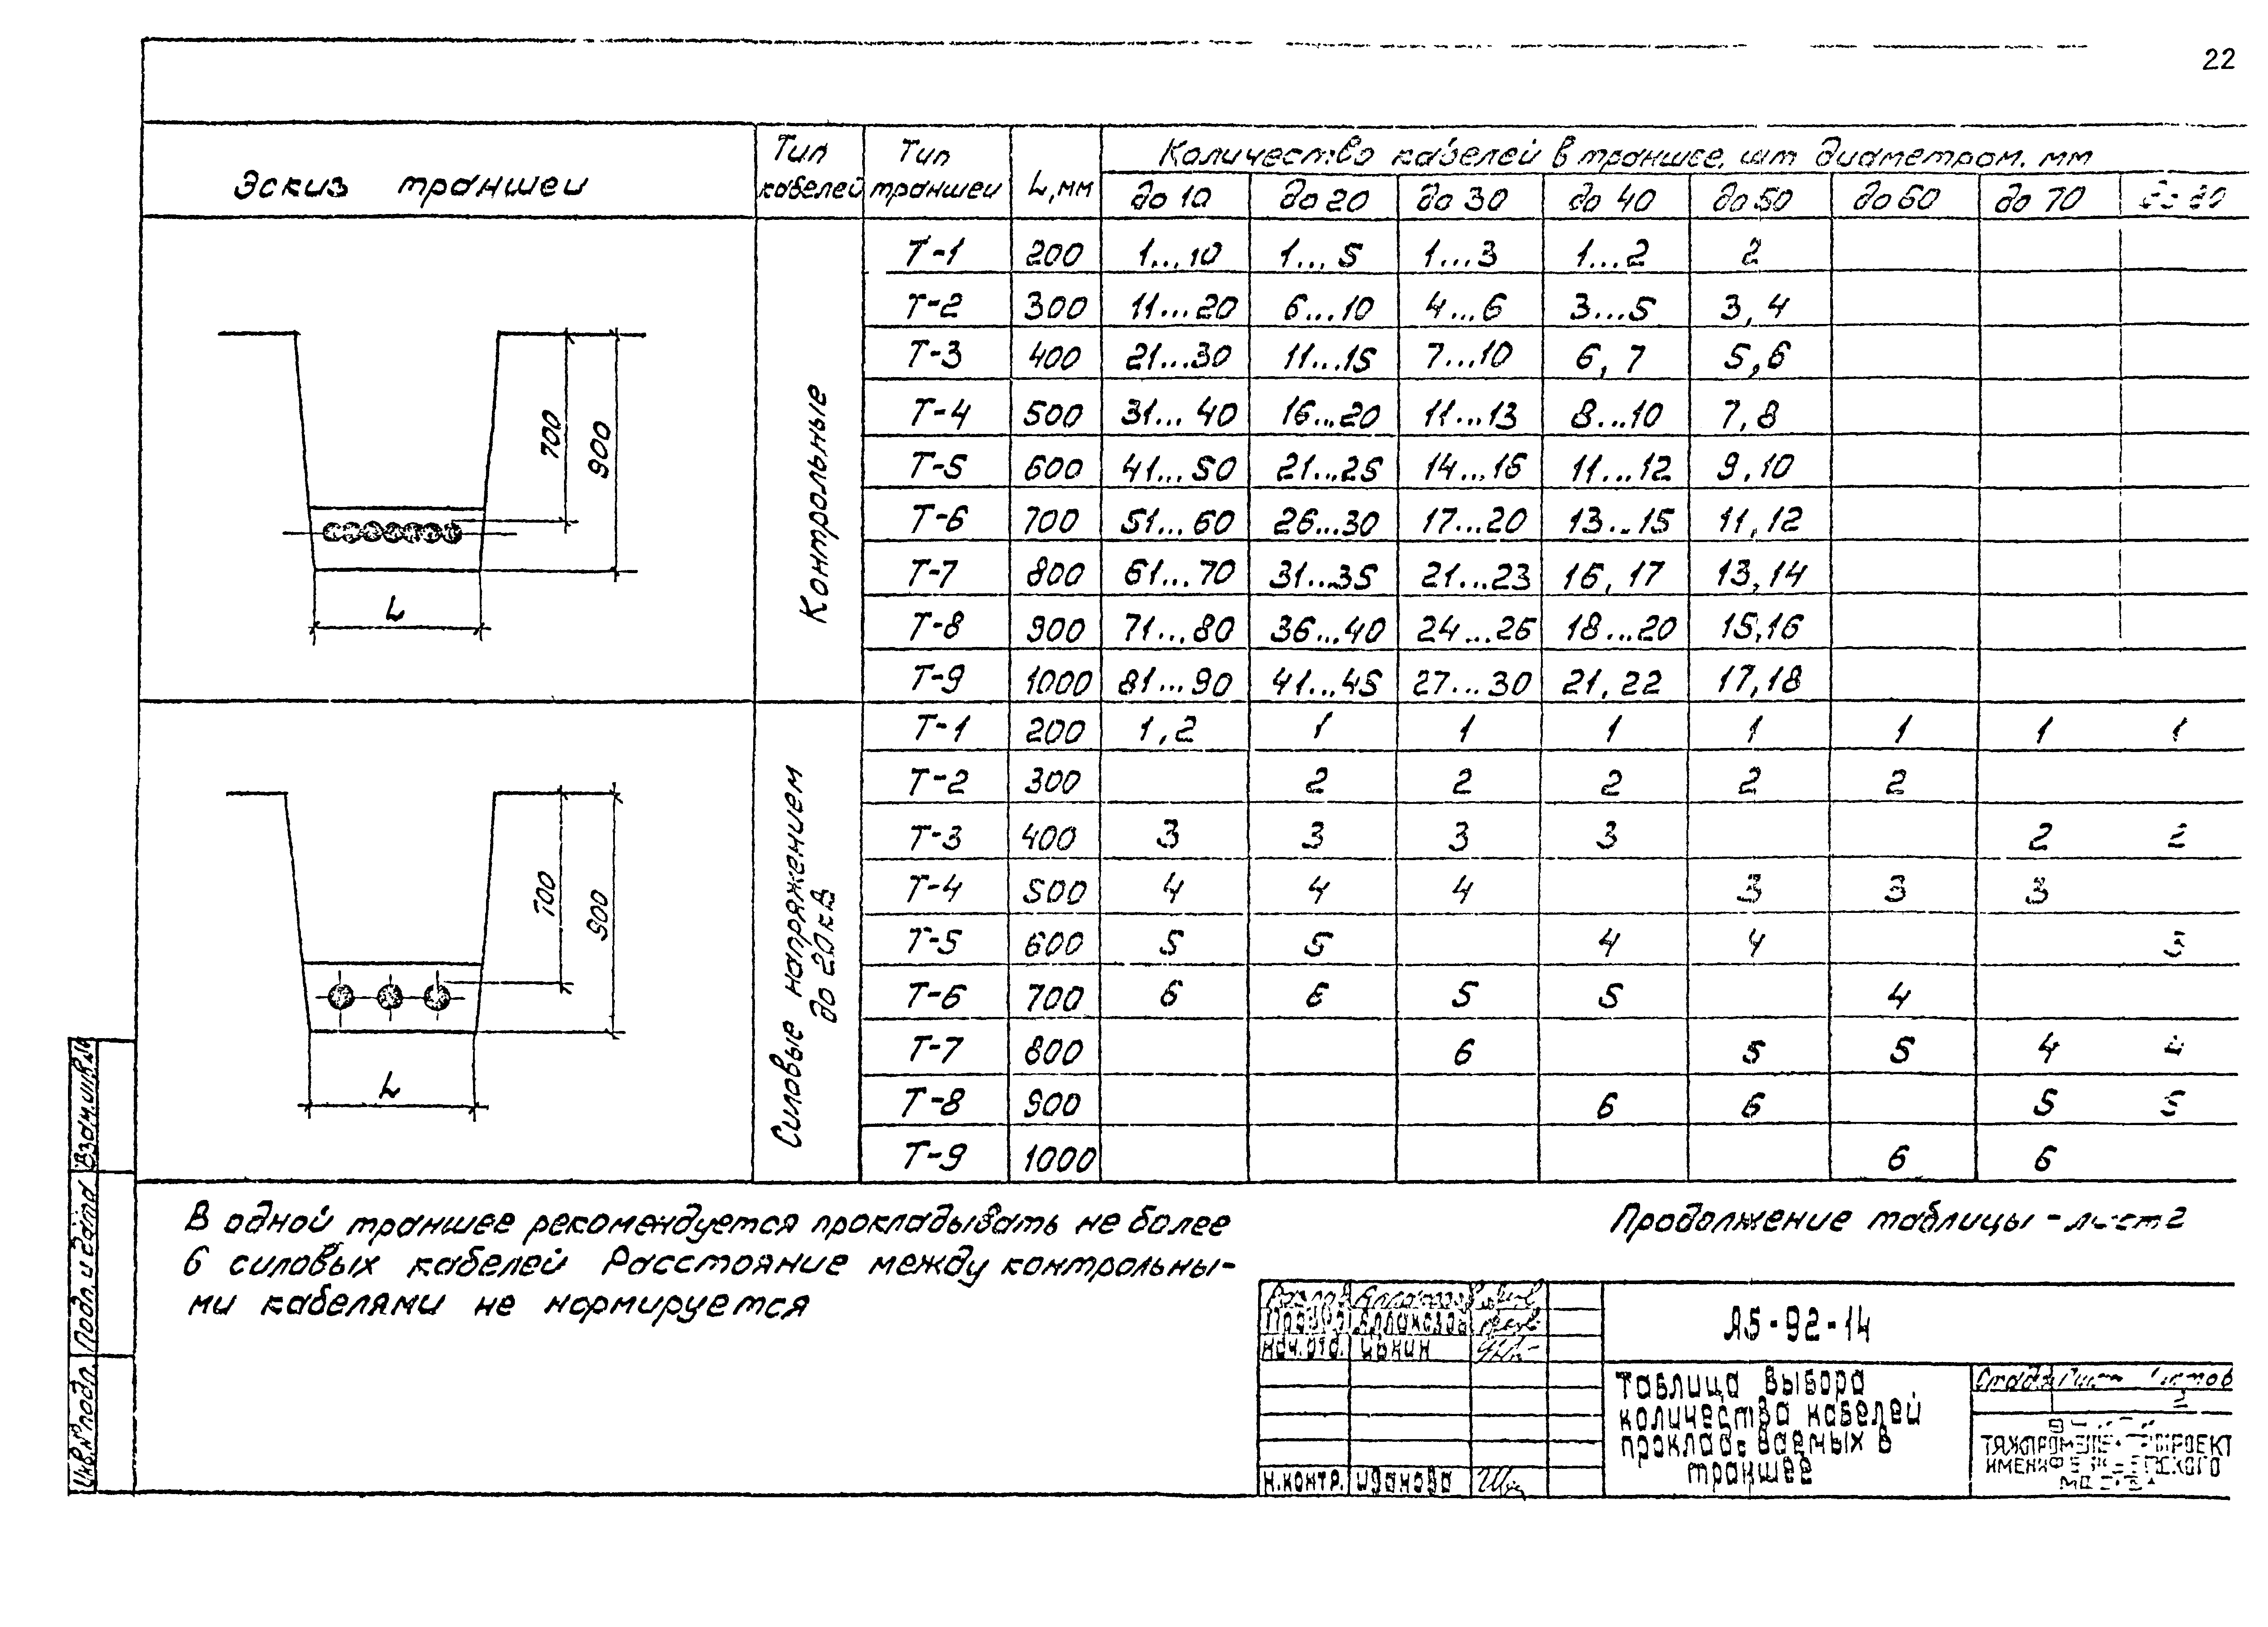 22
Эскиз траншеи
Тип кабелей
Тип траншеи
L, мм
Количество кабелей в траншее, шт диаметром, мм
до 10 до 20 до 30 до 40 до 50 до 60 до 70 до 80
Контрольные
Т-1 200 1...10 1...5 1...3 1...2 2
Т-2 300 11...20 6...10 4...6 3...5 3,4
Т-3 400 21...30 11...15 7...10 6,7 5,6
Т-4 500 31...40 16...20 11...13 8...10 7,8
Т-5 600 41...50 21...25 14...16 11...12 9,10
Т-6 700 51...60 26...30 17...20 13...15 11,12
Т-7 800 61...70 31...35 21...23 16,17 13,14
Т-8 900 71...80 36...40 24...26 18...20 15,16
Т-9 1000 81...90 41...45 27...30 21,22 17,18
700
900
L
Силовые напряжением
до 20кВ
Т-1 200 1,2 1 1 1 1 1 1 1
Т-2 300 2 2 2 2 2
Т-3 400 3 3 3 3 2 2
Т-4 500 4 4 4 3 3 3
Т-5 600 5 5 4 4 3
Т-6 700 6 6 5 5 4
Т-7 800 6 5 5 4 4
Т-8 900 6 6 5 5
Т-9 1000 6 6
700
900
L
В одной траншее рекомендуется прокладывать не более
6 силовых кабелей Расстояние между контрольны-
ми кабелями не нормируется
Продолжение таблицы - лист 2
А5-92-14
Таблица выбора
количества кабелей
прокладываемых в
траншее
Нач.отд.
Н.контр. Иванова
Стадия Лист Листов
2
Взам.инв.№
Подп. и дата
Инв.№подл.